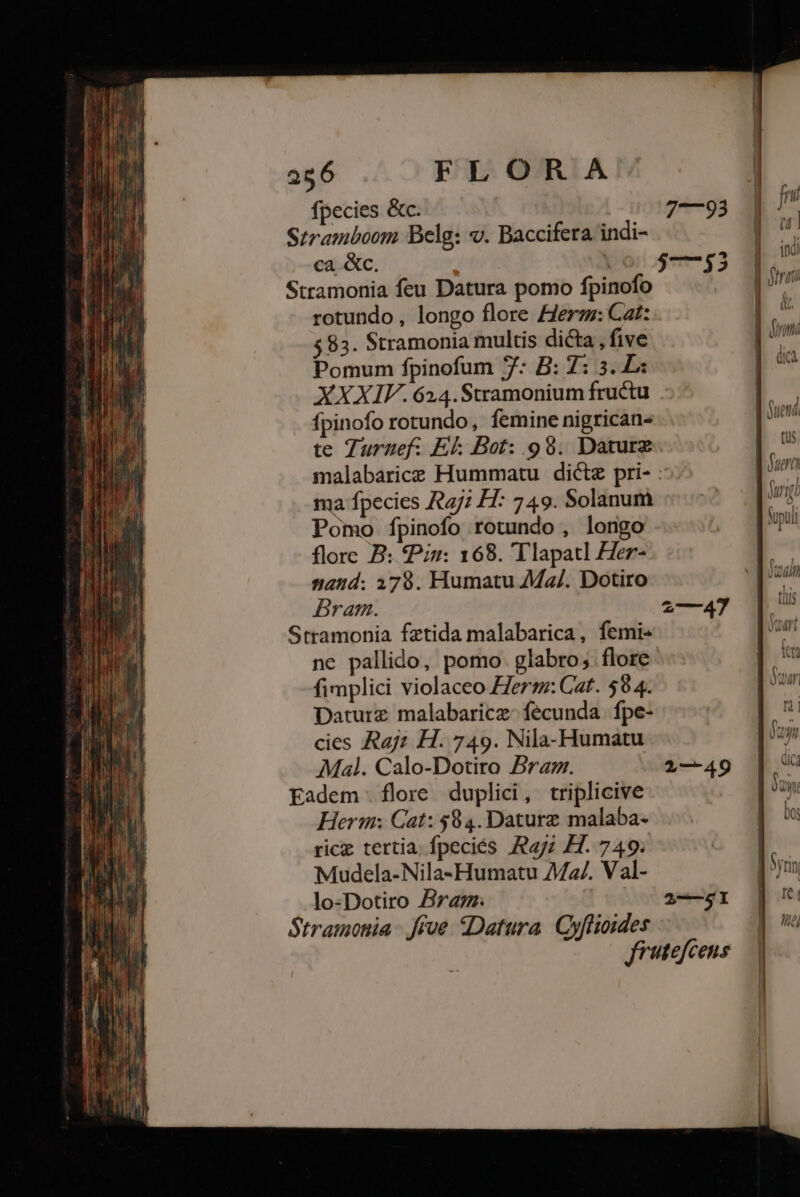 256 FLORA
ſpecies &c. 7—93
Stramboom Belg: v. Baccifera indi-
ca &c. 5—53
Stramonia ſeu Datura pomo ſpinoſo
rotundo, longo flore Herm: Cat:
583. Stramonia multis dicta, ſive
Pomum ſpinoſum J: B: T: 3. L:
XXXIV. 624. Stramonium fructu
ſpinoſo rotundo, ſemine nigrican-
te Turnef: El: Bot: 98. Daturæ
malabaricæ Hummatu dictæ pri-
ma ſpecies Raji H: 749. Solanum
Pomo ſpinoſo rotundo, longo
flore B: Pin: 168. Tlapatl Her-
nand: 278. Humatu Mal. Dotiro
Bram. 2—47
Stramonia fætida malabarica, ſemi-
ne pallido, pomo glabro, flore
ſimplici violaceo Herm: Cat. 584.
Daturæ malabaricæ ſecunda ſpe-
cies Raji H. 749. Nila-Humatu
Mal. Calo-Dotiro Bram. 2—49
Eadem flore duplici, triplicive
Herm: Cat: 584. Daturæ malaba-
ricæ tertia ſpecies Raji H. 749.
Mudela-Nila-Humatu Mal. Val-
lo-Dotiro Bram. 2—51
Stramonia ſive Datura Cyſtioides
fruteſcens